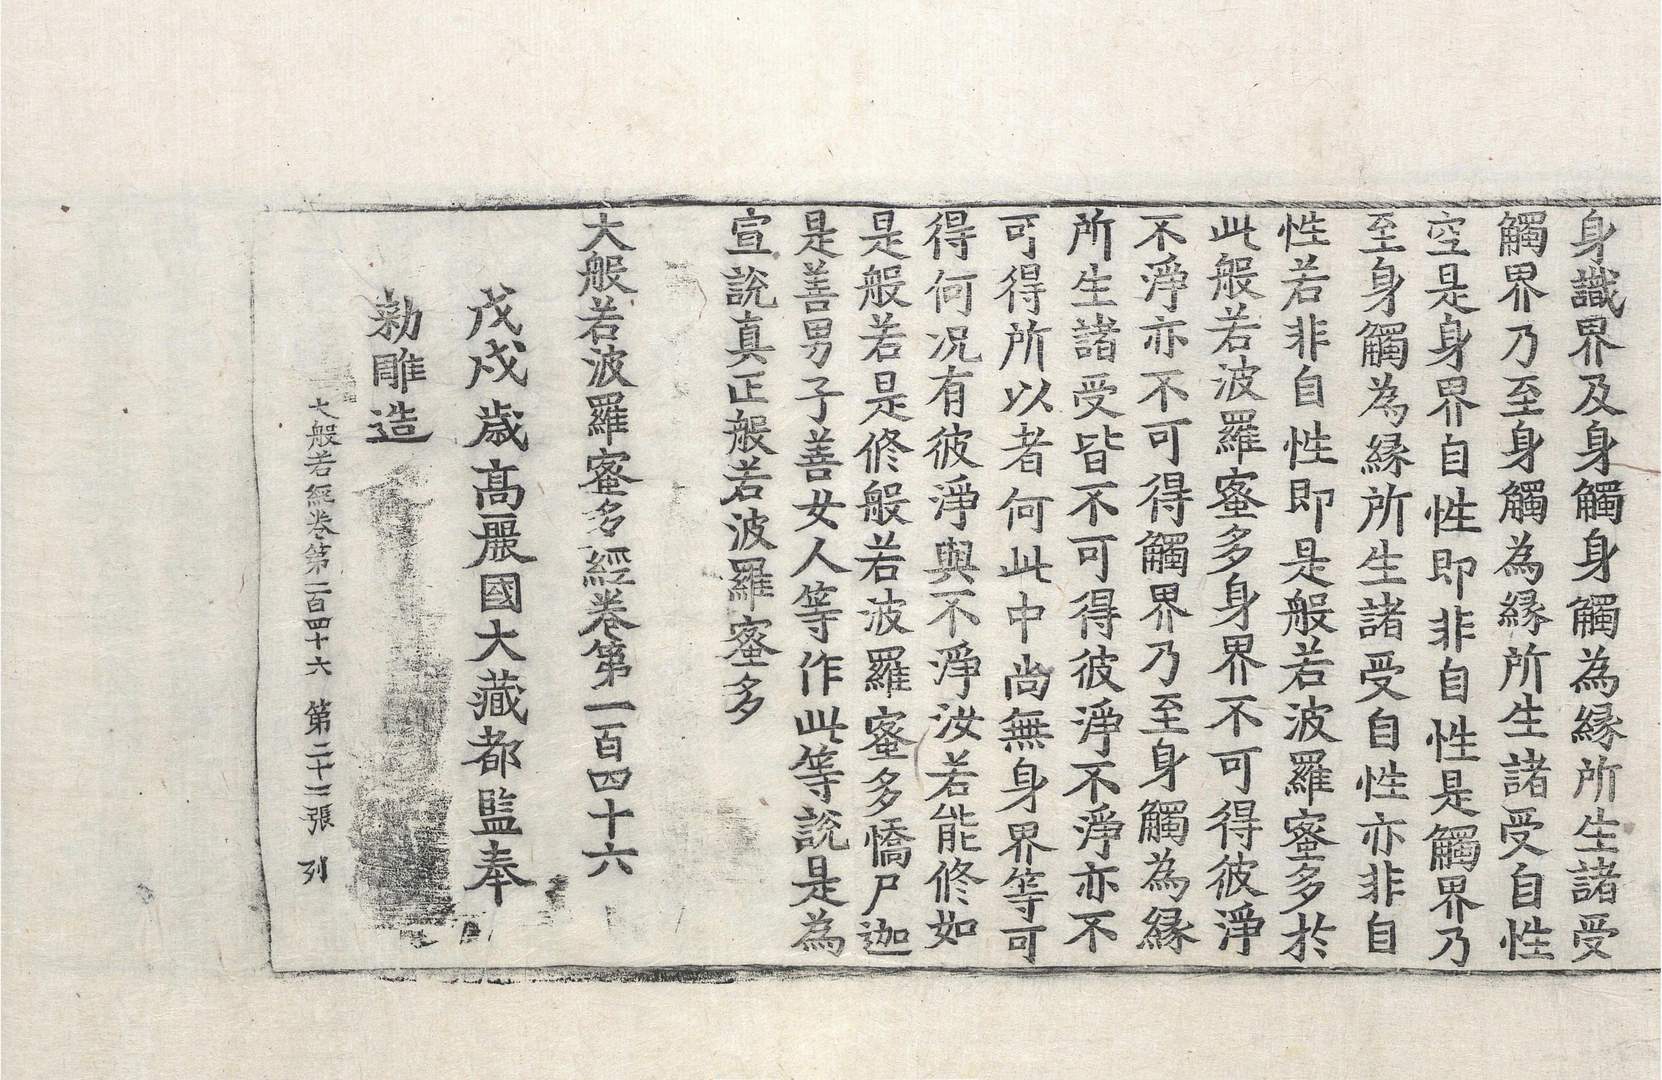 身識界及身觸身觸為縁所生諸受
觸界乃至身觸為縁所生諸受自性
空是身界自性即非自性是觸界乃
至身觸為縁所生諸受自性亦非自
性若非自性即是般若波羅蜜多於
此般若波羅蜜多身界不可得彼淨
不淨亦不可得觸界乃至身觸為縁
所生諸受皆不可得彼淨不淨亦不
可得所以者何此中尚無身界等可
得何况有彼淨與不淨汝若能修如
是般若是修般若波羅蜜多憍尸迦
是善男子善女人等作此等說是為
宣說真正般若波羅蜜多
大般若波羅蜜多經卷第一百四十六
戊戌歲高麗國大藏都監奉
勑雕造
大般若經卷第一百四十六　第二十三張　列